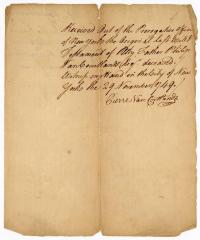 Received Out of the Prerogative Office
of New York the Original Last Will &
Testament of My Father Philip
Van Cortlandt Esqr deceased.
Witness my Hand in the City of New
York the 29 November 1749.
Pierre Van Cortlandt